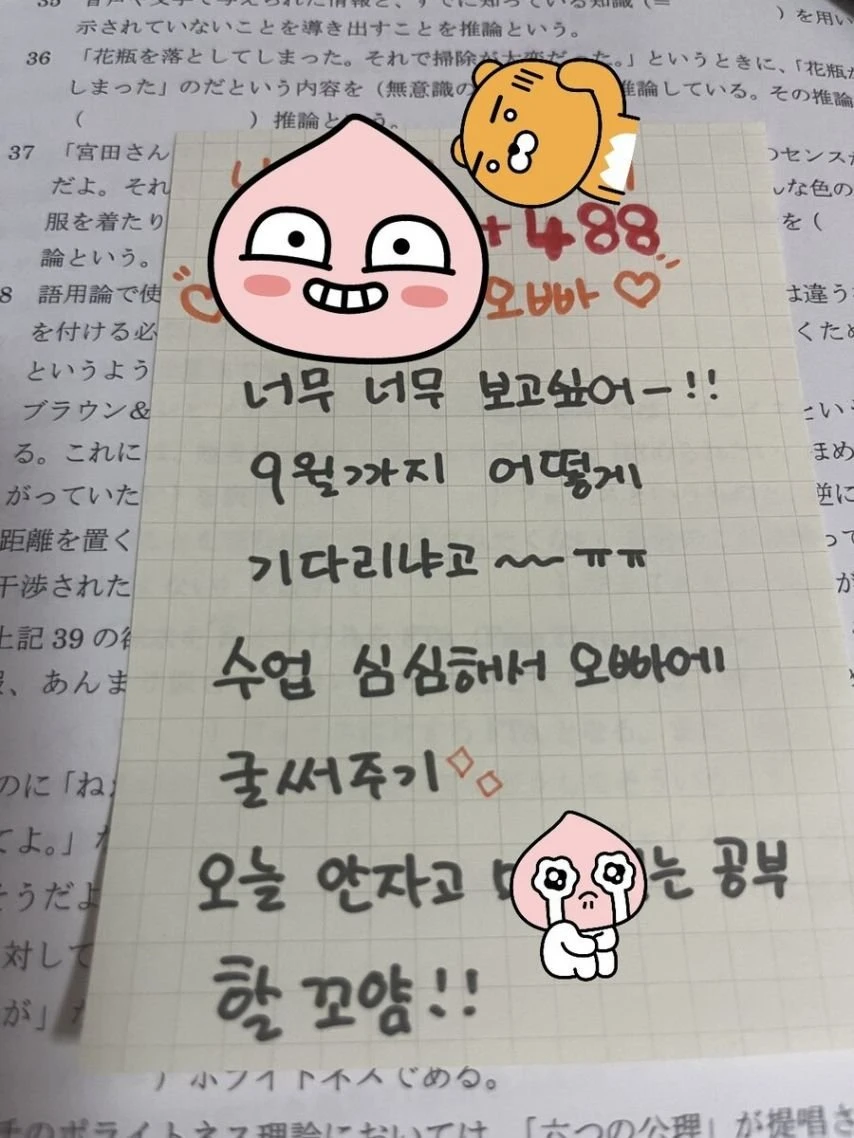 示されていないことを導き出すことを推論という。
36 「花瓶を落としてしまった。それで掃除が大変だった。」というときに、「花瓶が
しまった」のだという内容を(無意識の 推論している。その推論
( )推論という。
37 「宮田さん のセンスが
だよ。それ んな色の
服を着たり を(
論という。
+488
8 語用論で使 は違う
오빠
を付ける必 くため
というよう
너무 너무 보고싶어ー!!
ブラウン& という
る。これに まめ
9월까지 어떻게
がっていた 逆に
距離を置く って
기다리냐고 ~~ ㅠㅠ
干渉された が
上記39の
수업 심심해서 오빠에
、あんま
글써주기
のに「ね
てよ。」
오늘 안자고 는 공부
そうだよ
対して
할 꼬얌!!
が」
) ホワイト本人じめる。
のポライトネス理論においては、「六つの公理」が提唱さ